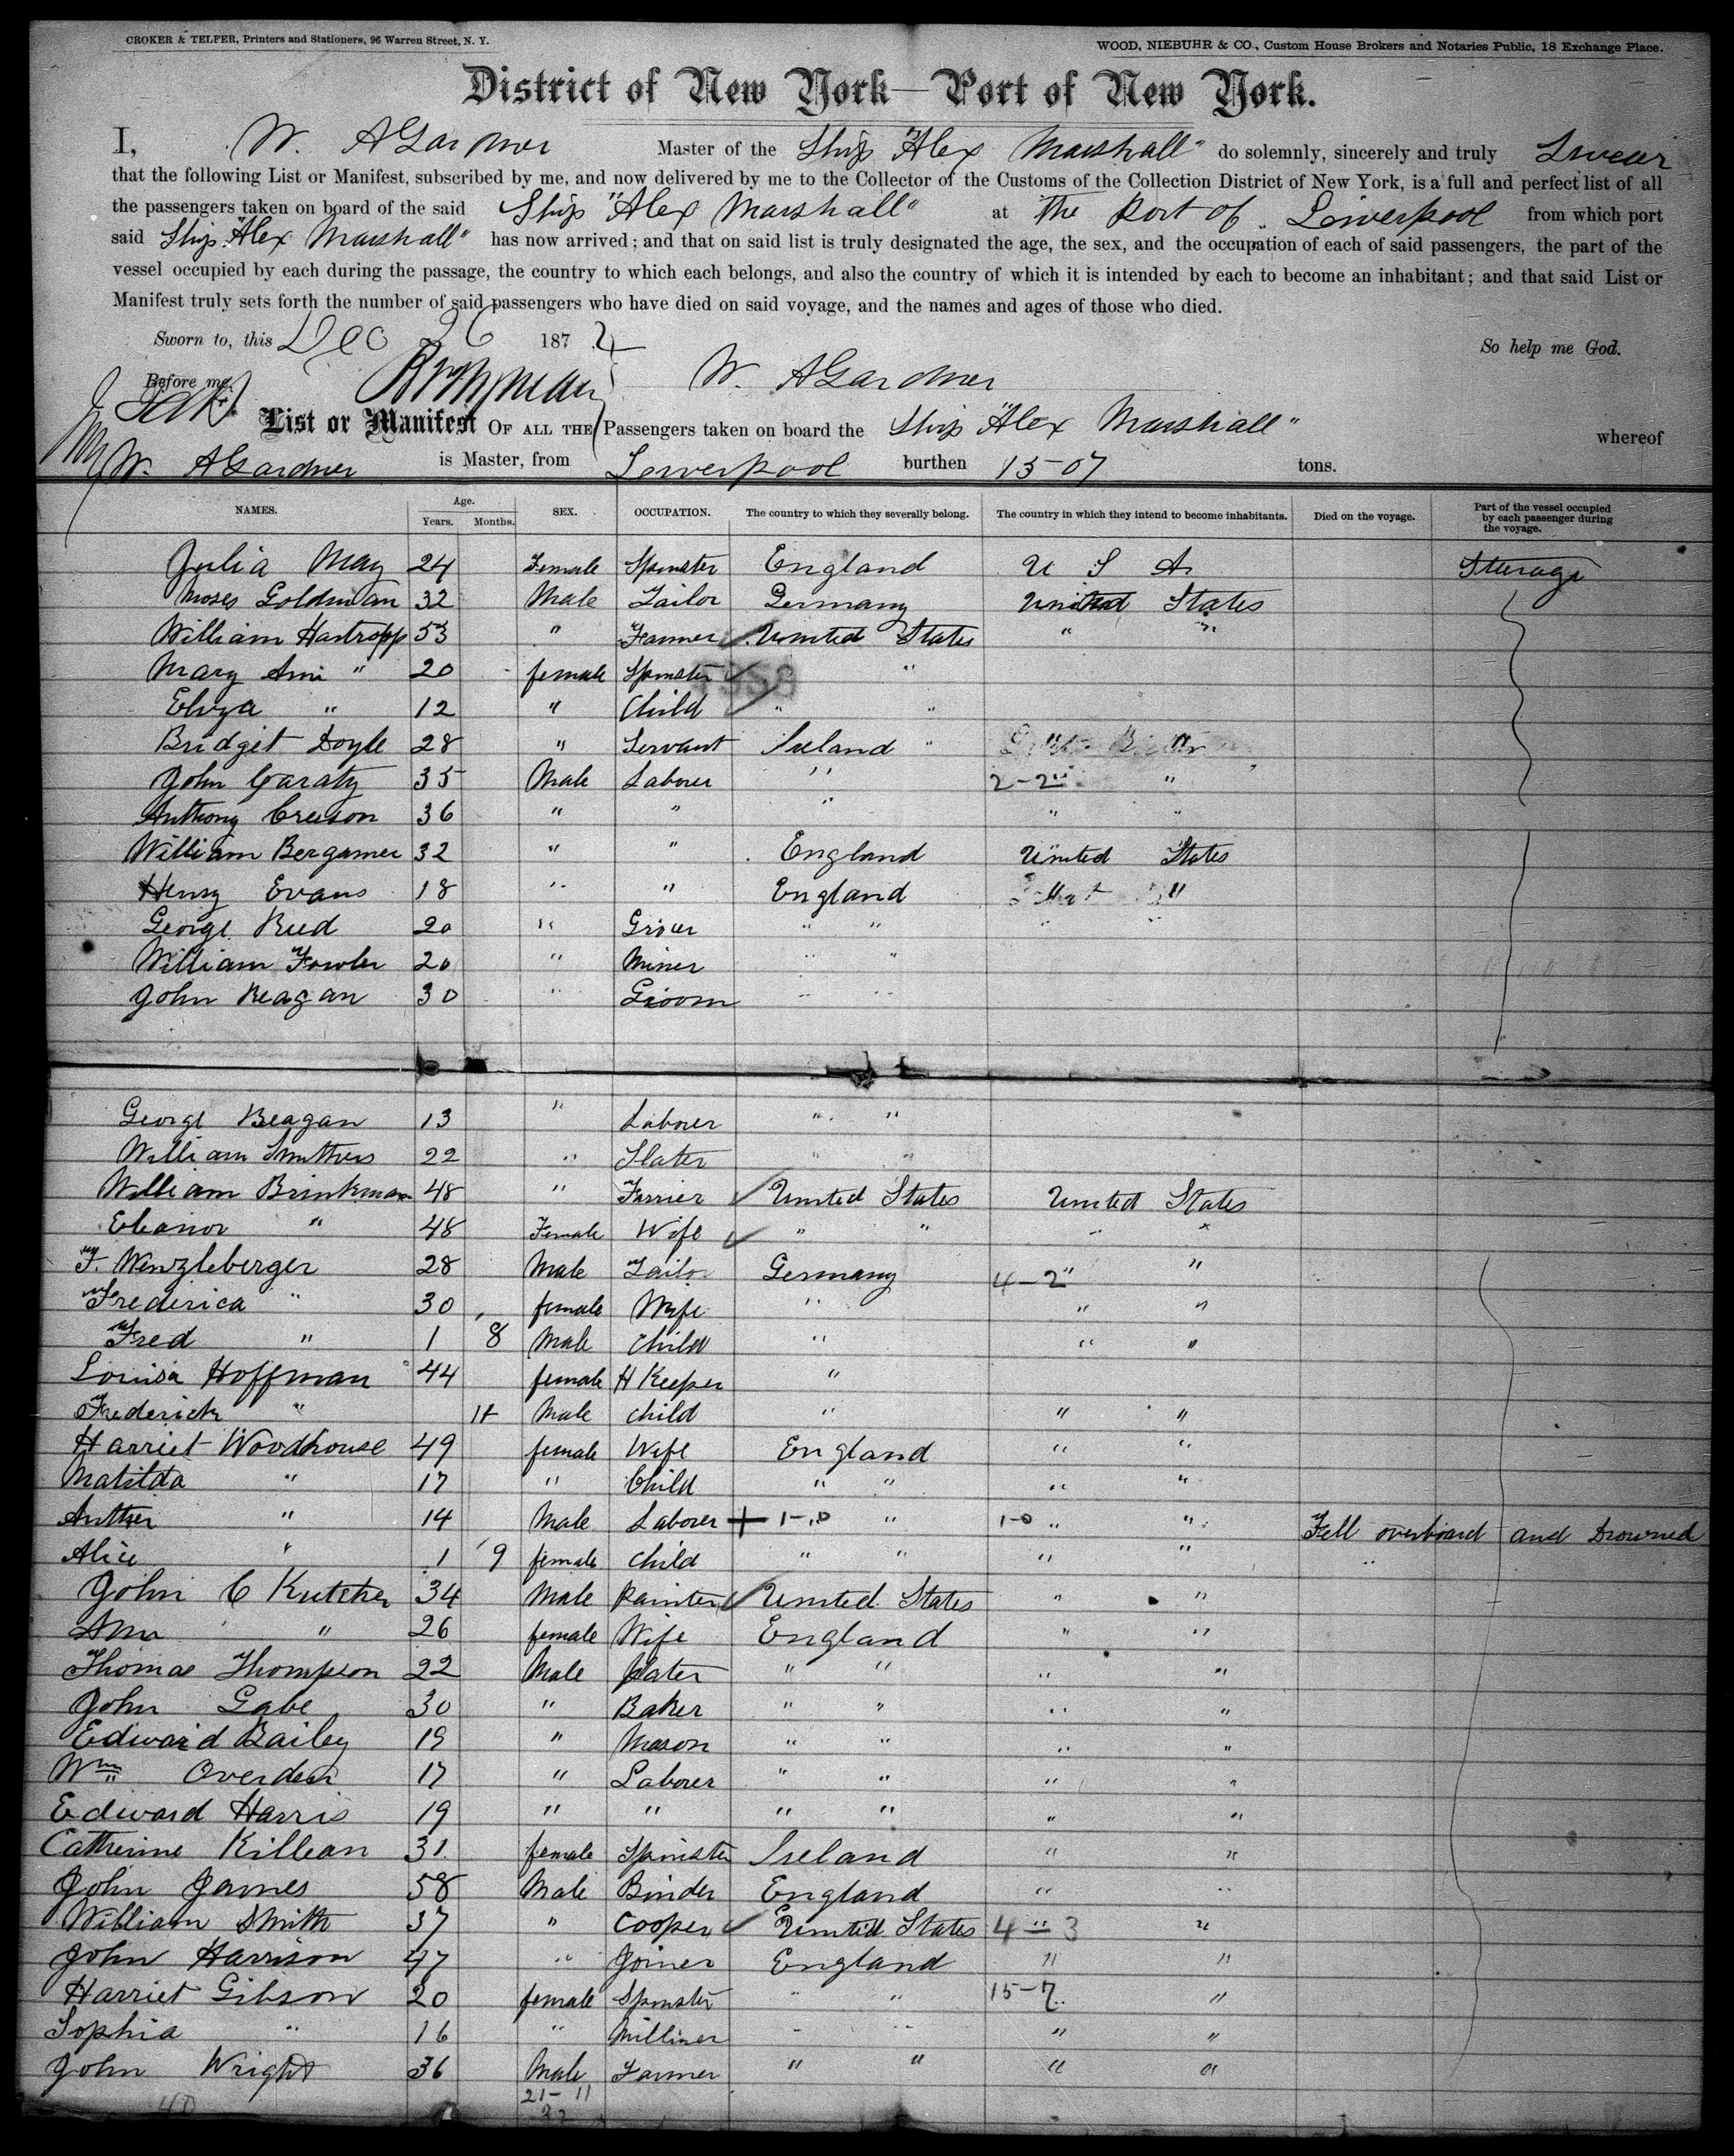 CROKER & TELFER, Printers and Stationers, 96 Warren Street, N. Y. WOOD, NIEBUHR & CO., Custom House Brokers and Notaries Public, 18 Exchange Place.
District of New York—Port of New York.
I, W. A Gardner Master of the Ship "Alex Marshall" do solemnly, sincerely and truly Swear
that the following List or Manifest, subscribed by me, and now delivered by me to the Collector of the Customs of the Collection District of New York, is a full and perfect list of all
the passengers taken on board of the said Ship "Alex Marshall" at The Port of Liverpool from which port
said Ship "Alex Marshall" has now arrived; and that on said list is truly designated the age, the sex, and the occupation of each of said passengers, the part of the
vessel occupied by each during the passage, the country to which each belongs, and also the country of which it is intended by each to become an inhabitant; and that said List or
Manifest truly sets forth the number of said passengers who have died on said voyage, and the names and ages of those who died.
Sworn to, this Dec 26 1874 So help me God.
Before me, W. A Gardner
List or Manifest OF ALL THE Passengers taken on board the Ship "Alex Marshall" whereof
W. A Gardner is Master, from Liverpool burthen 1507 tons.
NAMES. Age. Years. Months. SEX. OCCUPATION. The country to which they severally belong. The country in which they intend to become inhabitants. Died on the voyage. Part of the vessel occupied by each passenger during the voyage.
Julia May 24 Female Spinster England U S A Sturage
Moses Goldman 32 Male Tailor Germany United States
William Hartropp 53 " Farmer United States " "
Mary Ann " 20 female Spinster "
Eliza " 12 " Child " "
Bridget Doyle 28 " Servant Ireland "
John Garaty 35 Male Laborer " 2-2 " "
Anthony Creeson 36 " " " " "
William Bergamer 32 " " England United States
Henry Evans 18 " " England "
George Reed 20 " Grocer " " " "
William Fowler 20 " Miner " "
John Reagan 30 " Groom " "
George Reagan 13 " Laborer " "
William Smithers 22 " Slater " "
William Brinkman 48 " Farrier United States United States
Eleanor " 48 Female Wife " " " "
F. Wenzleberger 28 Male Tailor Germany 4-2 " "
Frederica " 30 female Wife " " "
Fred " 1 8 Male Child " " "
Louisa Hoffman 44 female H Keeper "
Frederick " 11 Male child " " "
Harriet Woodhouse 49 female Wife England " "
Matilda " 17 " Child " " " "
Arther " 14 Male Laborer + 1-0 " 1-0 " " Fell overboard and Drowned
Alice " 1 9 female child " " " " "
John C Kutcher 34 Male Painter United States " "
Ann " 26 female Wife England " "
Thomas Thompson 22 Male Slater " " " "
John Gabe 30 " Baker " " " "
Edward Bailey 19 " Mason " " " "
Wm Overden 17 " Laborer " " " "
Edward Harris 19 " " " " " "
Catherine Killean 31 female Spinster Ireland " "
John James 58 Male Binder England " "
William Smith 37 " Cooper United States 4-3 " "
John Harrison 47 " Joiner England " "
Harriet Gibson 20 female Spinster " " 15-7 " "
Sophia " 16 " Milliner " " " "
John Wright 36 Male Farmer " " " "
21-11
40 32